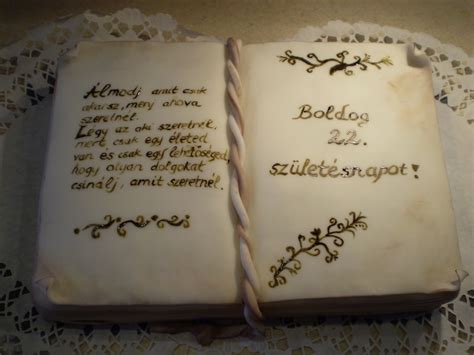 Álmodj amit csak
akarsz, menj ahova
szeretnél.
Légy az aki szeretnél,
mert, csak egy életed
van és csak egy lehetőséged,
hogy olyan dolgokat
csinálj, amit szeretnél.
Boldog
22.
születésnapot!